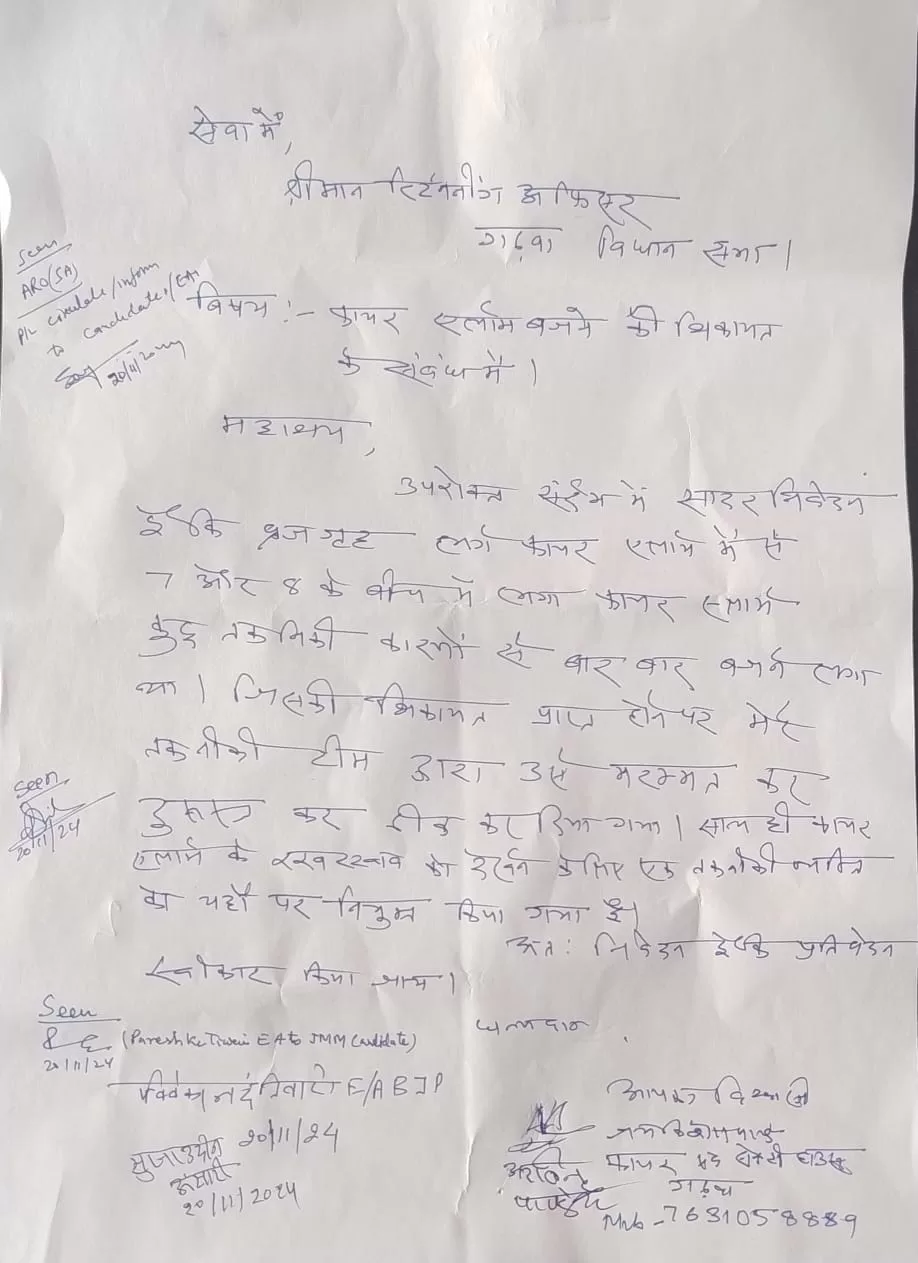 सेवा में,
श्रीमान रिटर्ननींग अफिसर
गढ़वा विधान सभा।
Seen
ARO(SA)
Plz circulate/inform
to candidate/EA
20/11/2024
विषय :- फायर एलार्म बजने की शिकायत
के संबंध में।
महाशय,
उपरोक्त संर्दभ में सादर निवेदन
है कि ब्रजगृह लगे फायर एलार्म में से
7 और 8 के बीच में लगा फायर एलार्म
कुछ तकनिकी कारणों से बार बार बजने लगा
था। जिसकी शिकायत प्राप्त होने पर मेरे
तकनीकी टीम द्वारा उसे मरम्मत कर
Seen
20/11/24
दुरूस्त कर ठीक कर दिया गया। साथ ही फायर
एलार्म के रखरखाव को देखने के लिए एक तकनीकी व्यक्ति
को यहाँ पर नियुक्त किया गया है।
अतः निवेदन है कि प्रतिवेदन
स्वीकार किया जाय।
धन्यवाद
Seen
20/11/24 (Paresh Kr Tiwari EA to JMM Candidate)
विवेकानंद तिवारी E/A BJP
20/11/24
सुजाउद्दीन
अंसारी
20/11/2024
आपका विश्वासी
फायर एंड सेफ्टी हाउस
गढ़वा
Mob - 7631058889
अरविन्द
पाण्डेय